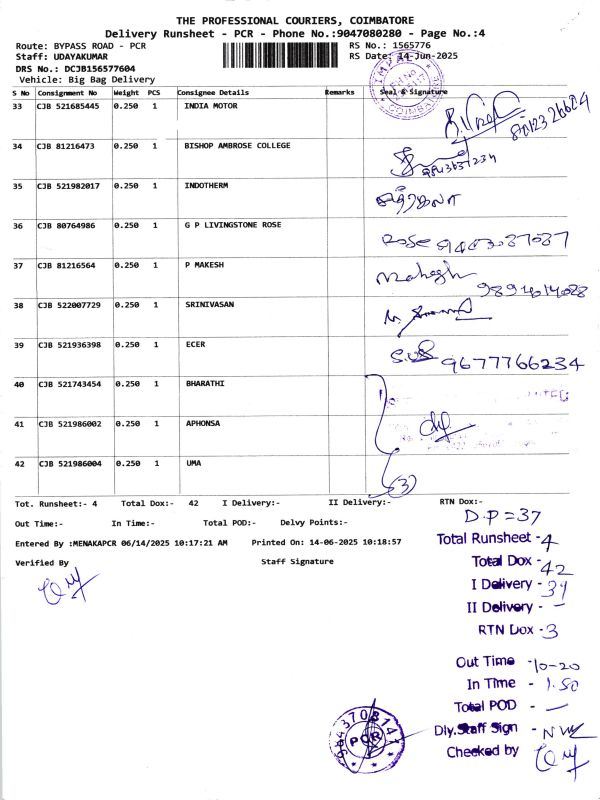 THE PROFESSIONAL COURIERS, COIMBATORE
Delivery Runsheet - PCR - Phone No.:9047080280 - Page No.:4
Route: BYPASS ROAD - PCR RS No.: 1565776
Staff: UDAYAKUMAR RS Date: 14-Jun-2025
DRS No.: DCJB156577604
Vehicle: Big Bag Delivery
S No Consignment No Weight PCS Consignee Details Remarks Seal & Signature
33 CJB 521685445 0.250 1 INDIA MOTOR
34 CJB 81216473 0.250 1 BISHOP AMBROSE COLLEGE
35 CJB 521982017 0.250 1 INDOTHERM
36 CJB 80764986 0.250 1 G P LIVINGSTONE ROSE Rose
37 CJB 81216564 0.250 1 P MAKESH Mahesh
38 CJB 522007729 0.250 1 SRINIVASAN
39 CJB 521936398 0.250 1 ECER 9677766234
40 CJB 521743454 0.250 1 BHARATHI
41 CJB 521986002 0.250 1 APHONSA
42 CJB 521986004 0.250 1 UMA
(3)
Tot. Runsheet:- 4 Total Dox:- 42 I Delivery:- II Delivery:- RTN Dox:-
D.P=37
Out Time:- In Time:- Total POD:- Delvy Points:-
Entered By :MENAKAPCR 06/14/2025 10:17:21 AM Printed On: 14-06-2025 10:18:57
Verified By Staff Signature
Total Runsheet - 4
Total Dox - 42
I Delivery - 39
II Delivery - -
RTN Dox - 3
Out Time - 10-20
In Time - 1.50
Total POD - -
Dly.Staff Sign -
Checked by
9843708141
PCR